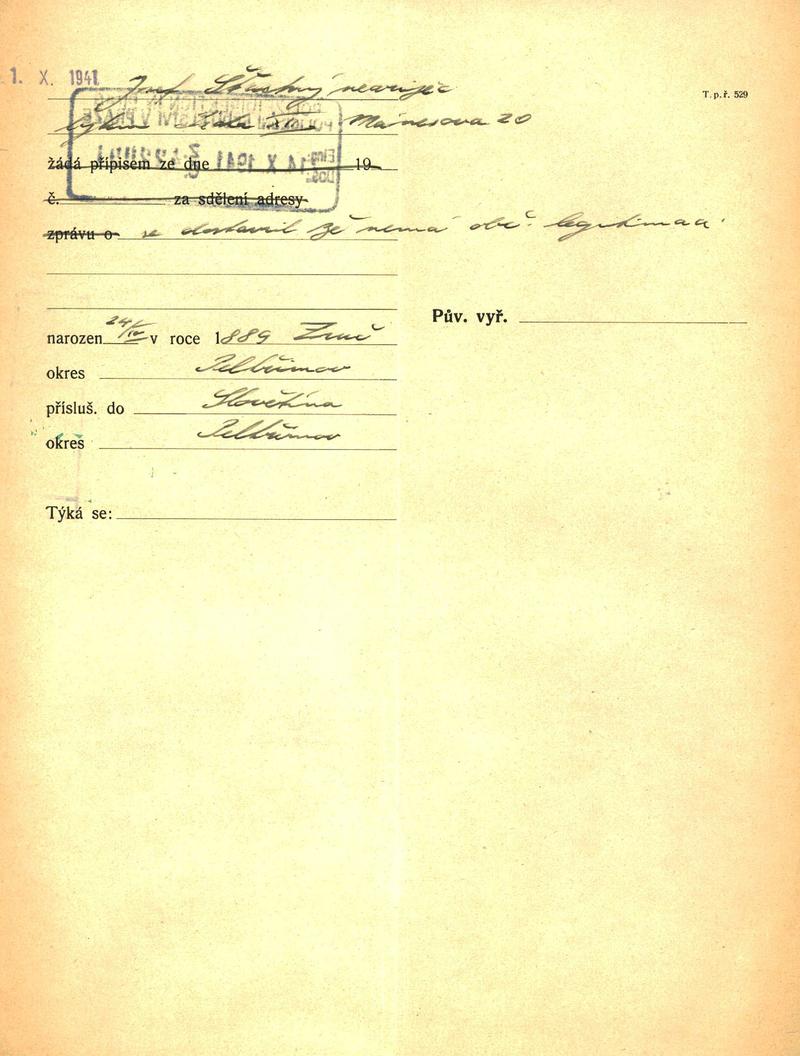 1. X. 1941
Josef Šťastný
T. p. ř. 529
Mánesova 20
14 X 1941
žádá přípisem ze dne 19
č. za sdělení adresy
zprávu o se dostavil že nemá obč. legitimaci
narozen 24/IV v roce 1889
Pův. vyř.
okres Pelhřimov
přísluš. do
okres Pelhřimov
Týká se: